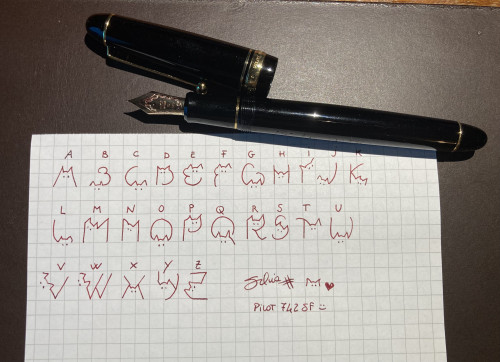 A B C D E F G H I J K
L M N O P Q R S T U
V W X Y Z
PILOT 742 SF